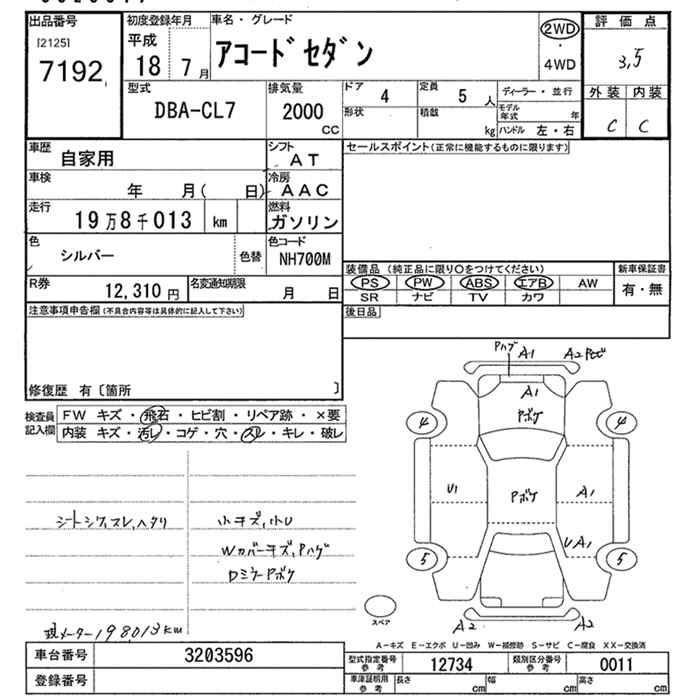 出品番号 初度登録年月 車名・グレード 2WD 評価点
[2125] 平成 アコードセダン ・ 3,5
7192 18 7月 4WD
型式 排気量 ドア 4 定員 5人 ディーラー・並行 外装 内装
DBA-CL7 2000cc 形状 積載 kg モデル年式 年 C C
ハンドル 左・右
車歴 自家用 シフト AT セールスポイント(正常に機能するものに限ります)
車検 年 月( 日) 冷房 AAC
走行 19万8千013 km 燃料 ガソリン
色 シルバー 色替 色コード NH700M
装備品(純正品に限り○をつけてください) 新車保証書
PS PW ABS エアB AW 有・無
SR ナビ TV カワ
R券 12,310円 名変通知期限 月 日 後日品
注意事項申告欄(不具合内容等は具体的に記入して下さい)
修復歴 有〔箇所 〕
検査員記入欄 FW キズ・飛石・ヒビ割・リペア跡・×要
内装 キズ・汚レ・コゲ・穴・スレ・キレ・破レ
PハゲA1 A2
A1
Pボケ
4 4
U1 Pボケ A1
UA1
5 5
A2 A2
スペア
シートシワ,スレ,ヘタリ 小キズ,小U
Wカバーキズ,Pハゲ
DミラーPボケ
現メーター198013km
A-キズ E-エクボ U-凹み W-補修跡 S-サビ C-腐食 XX-交換済
車台番号 3203596 型式指定番号参考 12734 類別区分番号参考 0011
登録番号 車庫証明用参考 長さ cm 幅 cm 高さ cm